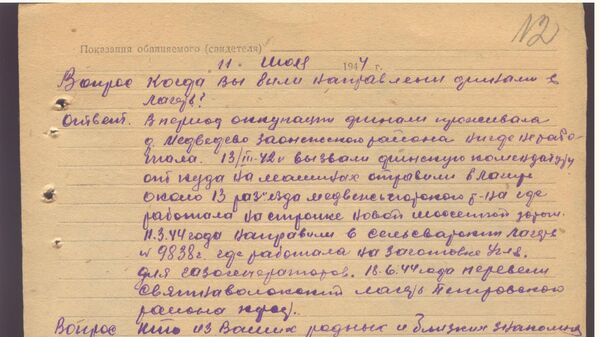 N2
Показания обвиняемого (свидетеля)
11. июля 1944 г.
Вопрос Когда вы были направлены финами в
лагерь?
Ответ. В период оккупации финами проживала
д. Медведево Заонежского района нигде не рабо-
тала. 13/III-42г вызвали финскую комендатуру
от куда на машинах отправили в лагерь
около 13 разъезда медвежьегорского р-на где
работала на стройке новой шоссейной дороги.
11.3.44 года направили в лагерь
N 9838г. где работала на заготовке угля
для газогенераторов. 18.6.44 года перевели
Святнаволокский лагерь Петровского
района
Вопрос Кто из Ваших родных и близких знакомых